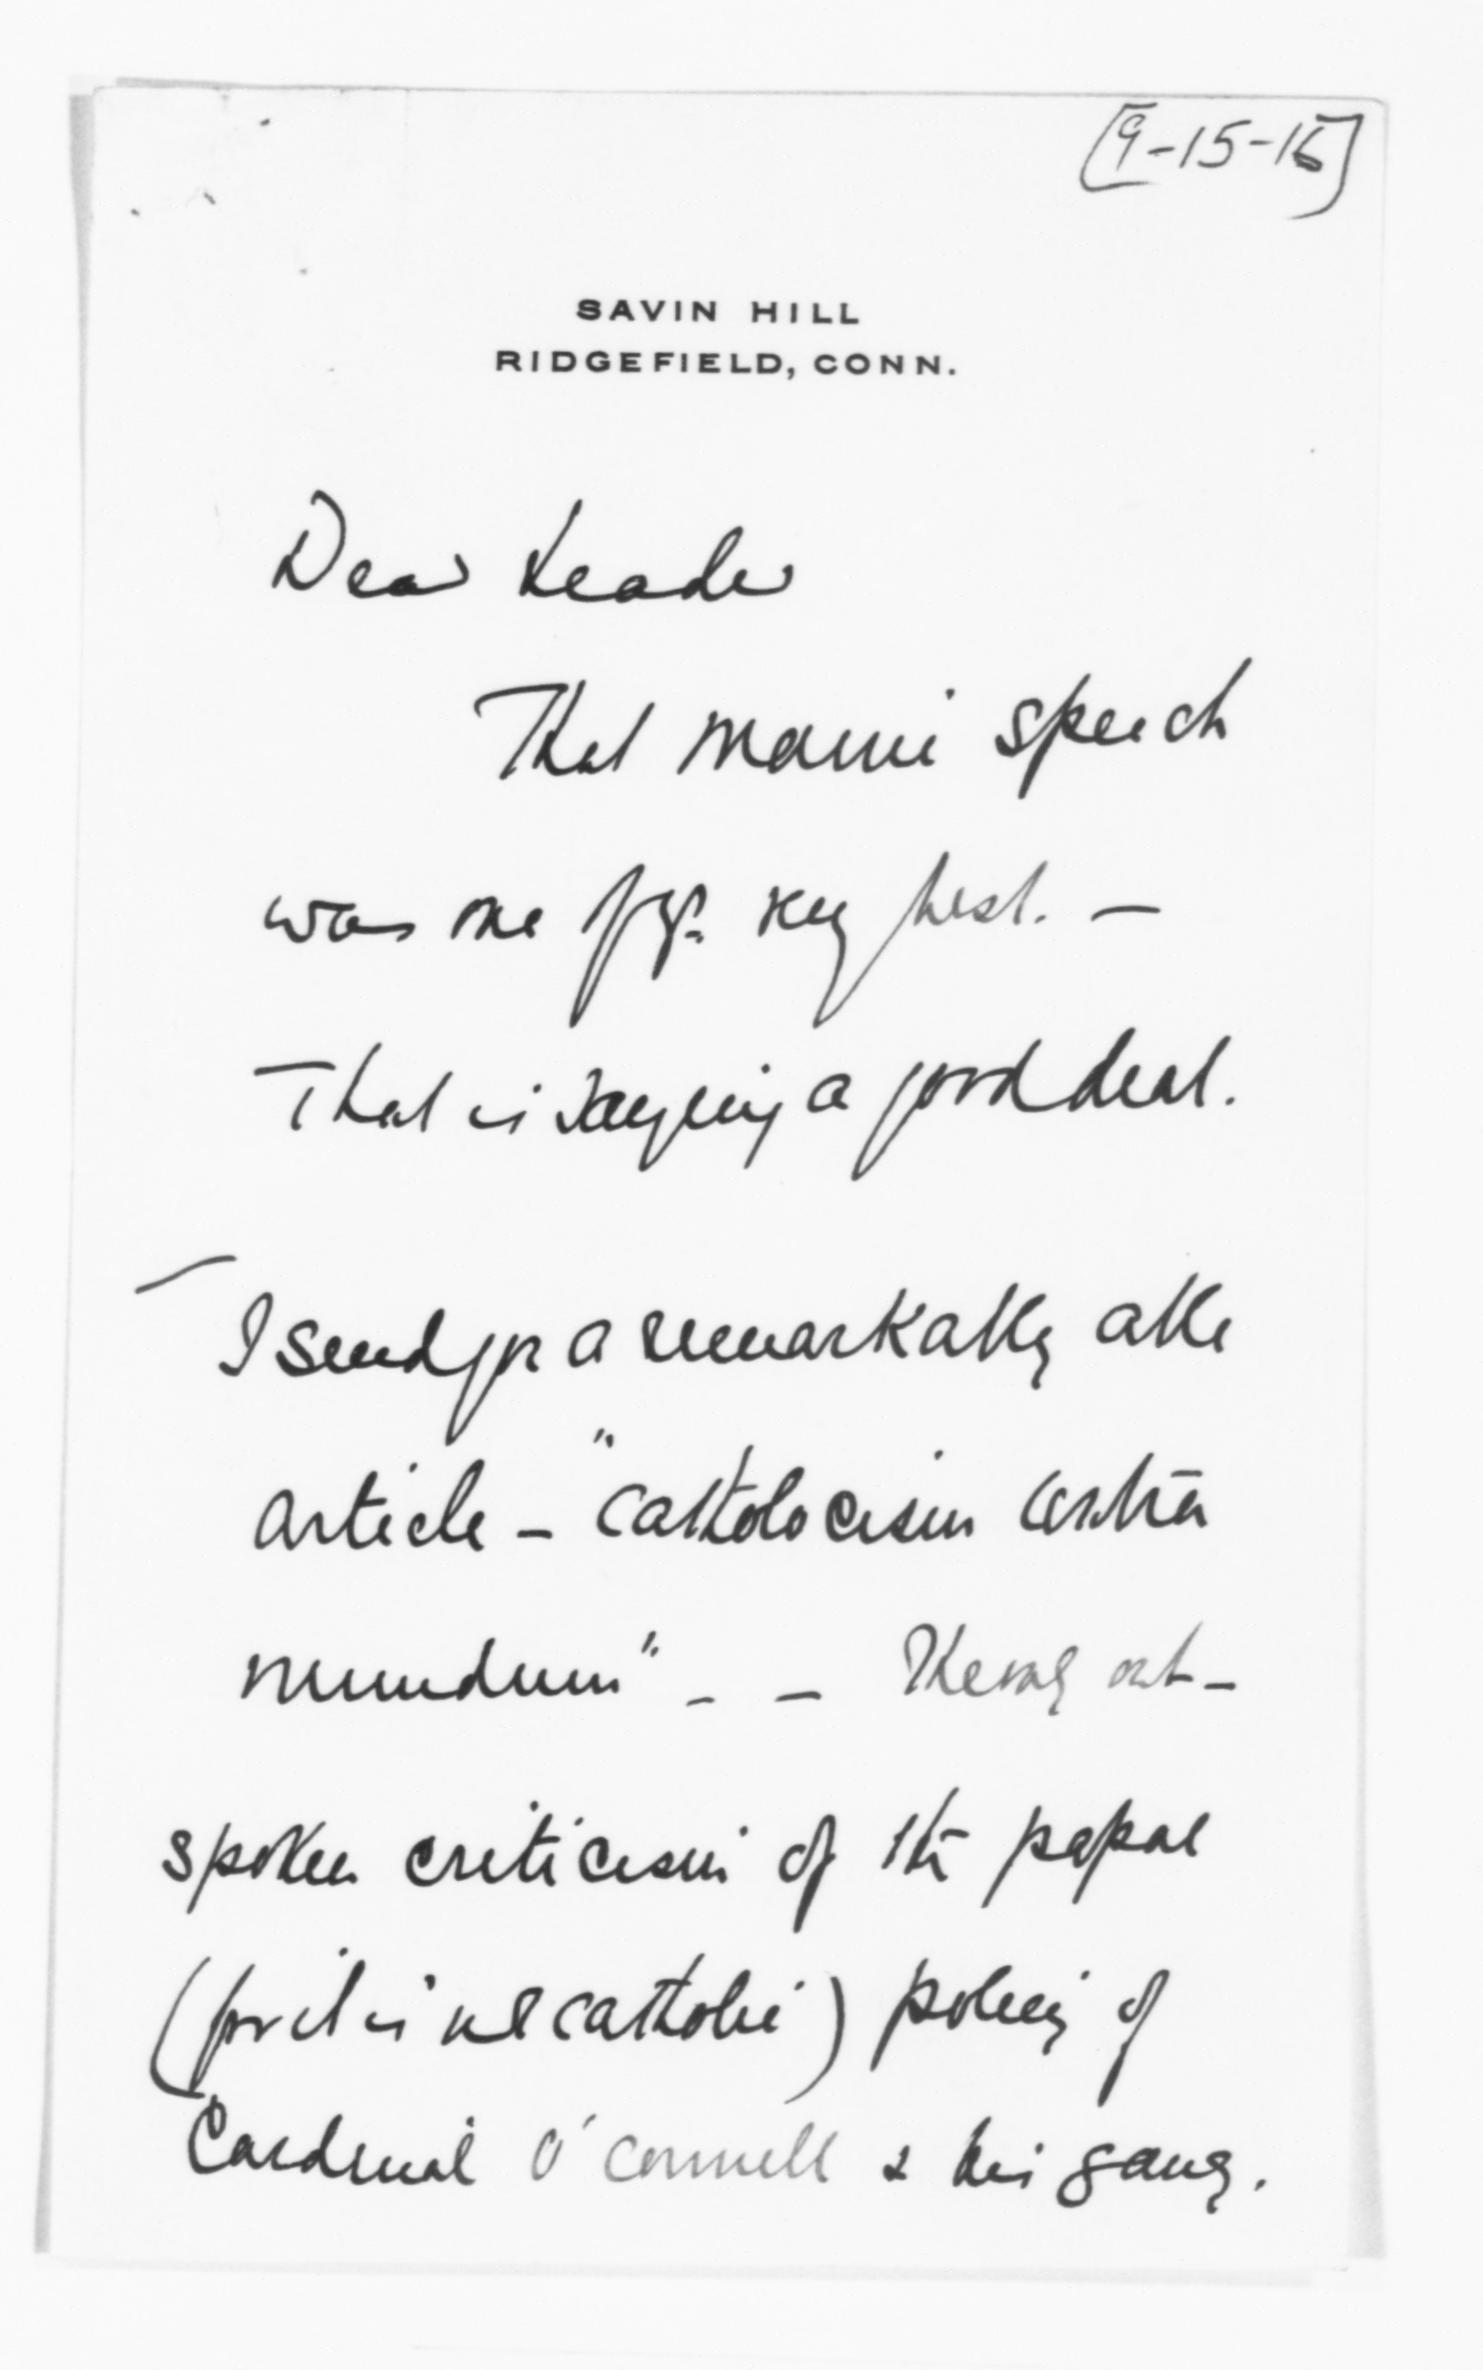 [9-15-16]
SAVIN HILL
RIDGEFIELD, CONN.
Dear Leader
That Maine speech
was one of yr. very best. —
That is saying a good deal.
— I send you a remarkably able
article — "Catholocism contra
mundum" - — The very out-
spoken criticism of the papal
(for it is not catholic) policy of
Cardinal O'Connell & his gang.